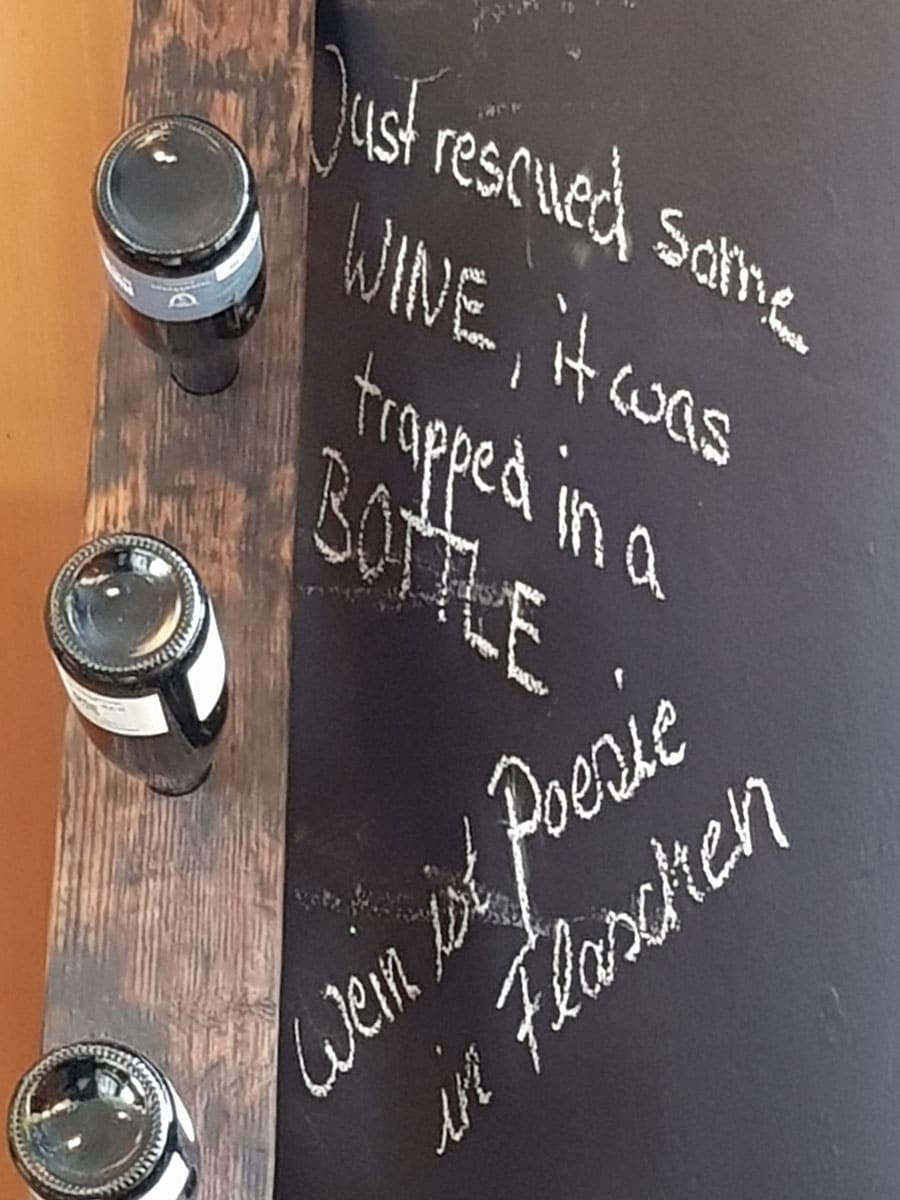 Just rescued some
WINE, it was
trapped in a
BOTTLE
Wein ist Poesie
in Flaschen